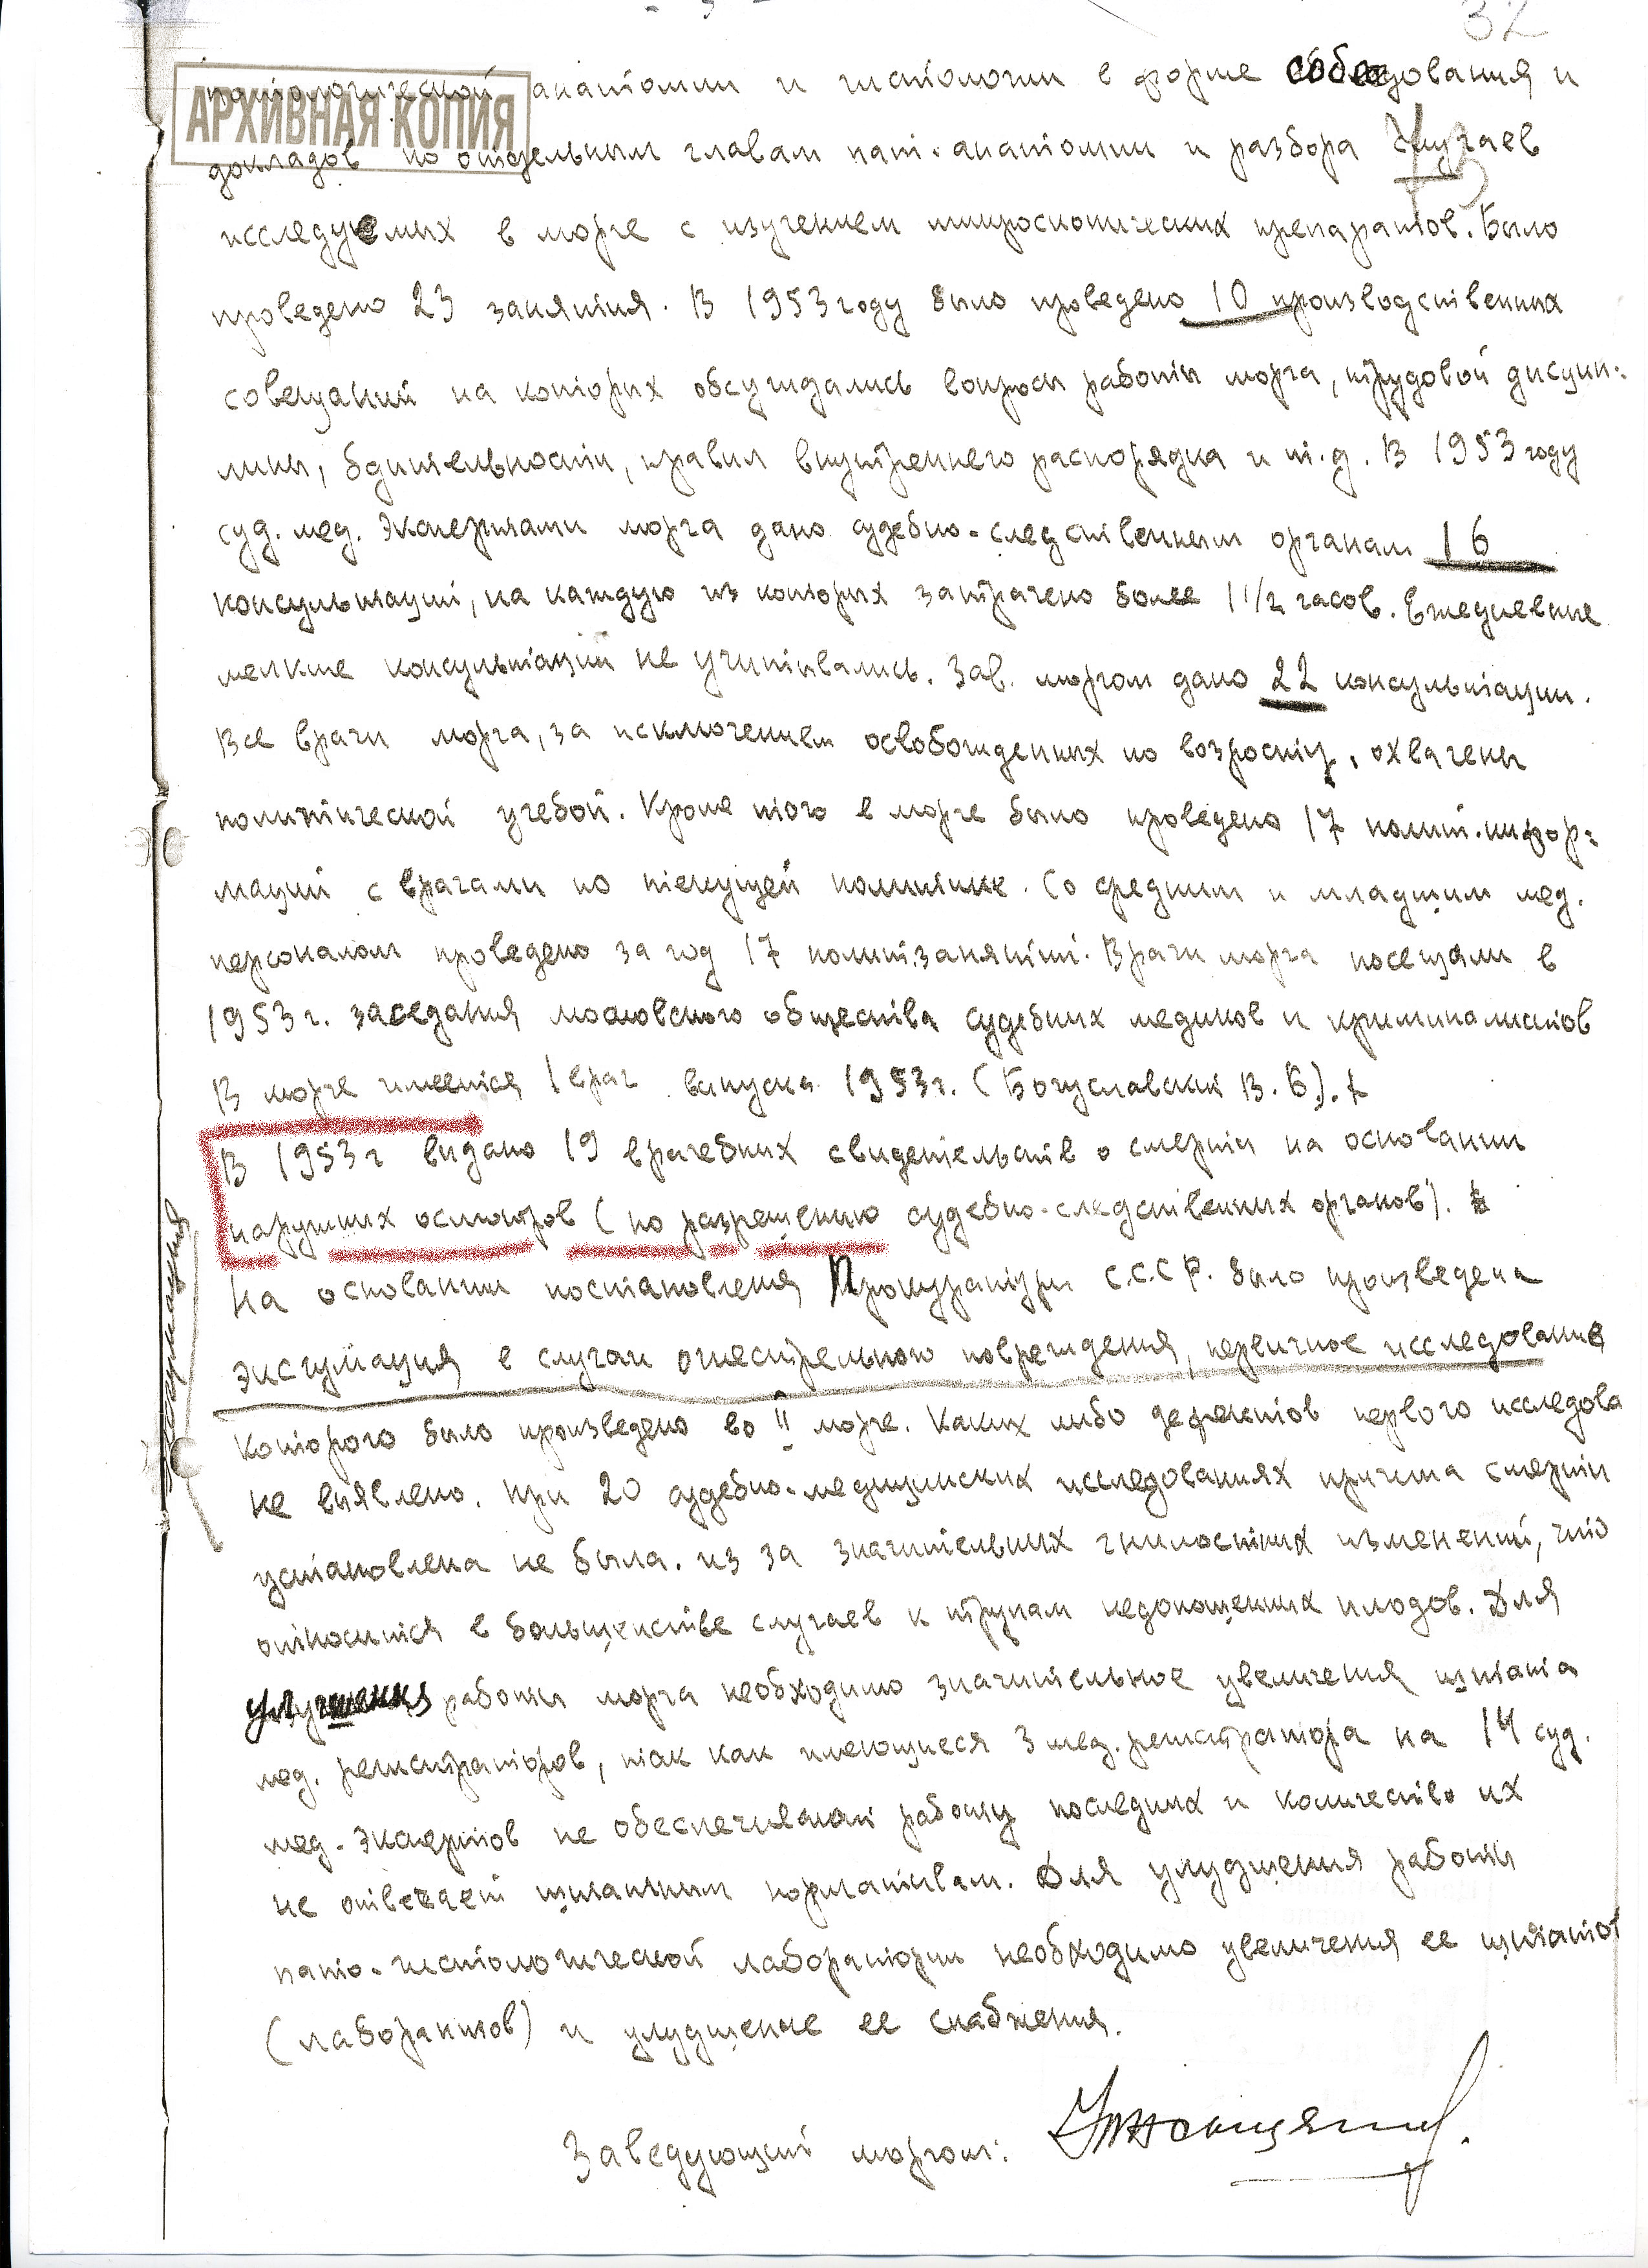 32
АРХИВНАЯ КОПИЯ
патологической анатомии и гистологии в форме собеседования и
докладов по отдельным главам пат. анатомии и разбора случаев
исследуемых в морге с изучением микроскопических препаратов. Было
проведено 23 занятия. В 1953 году было проведено 10 производственных
совещаний на которых обсуждались вопросы работы морга, трудовой дисцип-
лины, бдительности, правил внутреннего распорядка и т.д. В 1953 году
суд. мед. экспертами морга дано судебно-следственным органам 16
консультаций, на каждую из которых затрачено более 1 1/2 часов. Ежедневные
мелкие консультации не учитывались. Зав. моргом дано 22 консультации.
Все врачи морга, за исключением освобожденных по возросту, охвачены
политической учебой. Кроме того в морге было проведено 17 полит.инфор-
маций с врачами по текущей политике. Со средним и младшим мед.
персоналом проведено за год 17 политзанятий. Врачи морга посещали в
1953 г. заседания московского общества судебных медиков и криминалистов
В морге имеется 1 врач выпуска 1953 г. (Богуславский В. Б.).
В 1953 г выдано 19 врачебных свидетельств о смерти на основании
наружних осмотров (по разрешению судебно-следственных органов).
На основании постановления Прокуратуры С.С.С.Р. было произведена
эксгумация в случаи огнестрельного повреждения, первичное исследование
которого было произведено во II морге. Каких либо дефектов первого исследова
не выявлено. При 20 судебно-медицинских исследованиях причина смерти
установлена не была. из за значительных гнилостных изменений, что
относится в большенстве случаев к трупам недоношенных плодов. Для
улучшения работы морга необходимо значительное увеличения штата
мед. регистраторов, так как имеющиеся 3 мед. регистратора на 14 суд.
мед. экспертов не обеспечивают работу последних и количество их
не отвечает штатным нормативам. Для улудшения работы
пато-гистологической лаборатории необходимо увеличения ее штатов
(лаборантов) и улудшение ее снабжения.
Заведующий моргом:
эксгумация